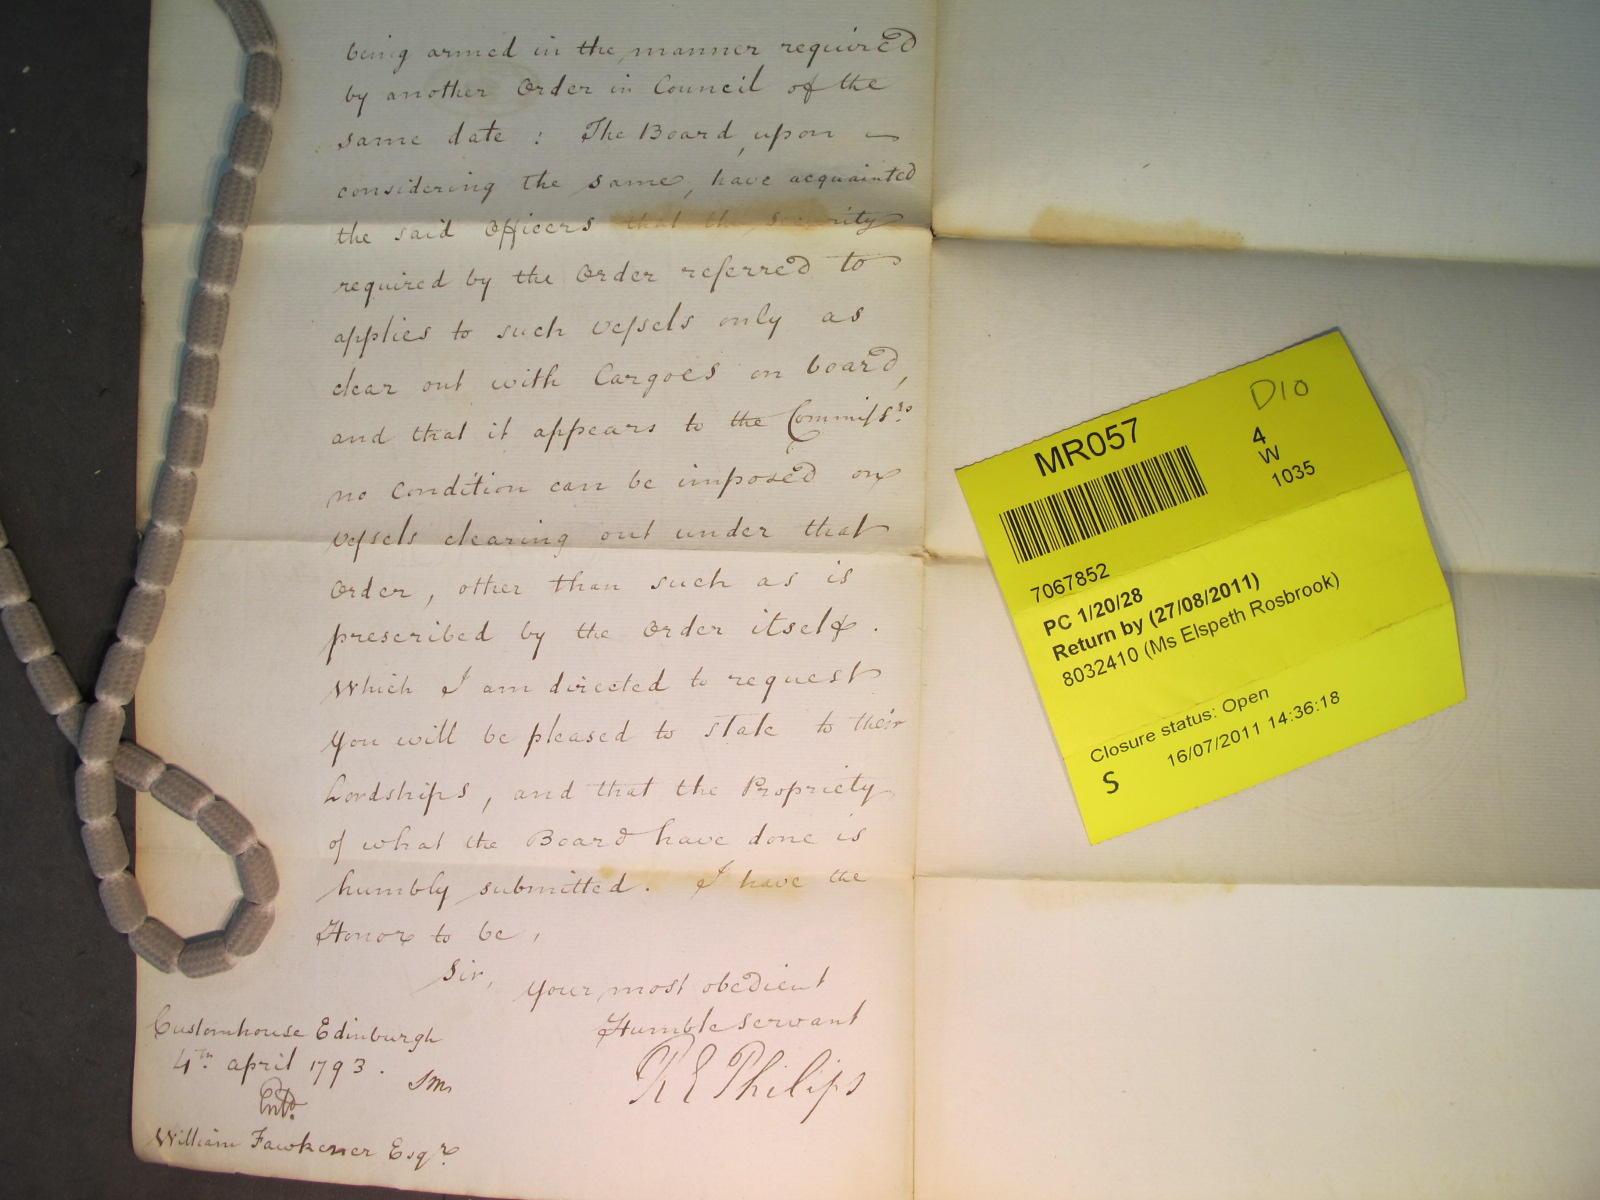 being armed in the manner required
by another Order in Council of the
same date : The Board, upon
considering the same, have acquainted
the said Officers that the security
required by the Order referred to
applies to such vessels only as
clear out with Cargoes on board,
and that it appears to the Commissrs.
no Condition can be imposed on
vessels clearing out under that
Order, other than such as is
prescribed by the Order itself.
Which I am directed to request
You will be pleased to state to their
Lordships, and that the Propriety
of what the Board have done is
humbly submitted. I have the
Honor to be,
Sir,
Your most obedient
Humble servant
R E Philips
Customhouse Edinburgh
4th. april 1793.
Entd.
William Fawkener Esqr.
MR057
D10
4
W
1035
7067852
PC 1/20/28
Return by (27/08/2011)
8032410 (Ms Elspeth Rosbrook)
Closure status: Open
S
16/07/2011 14:36:18